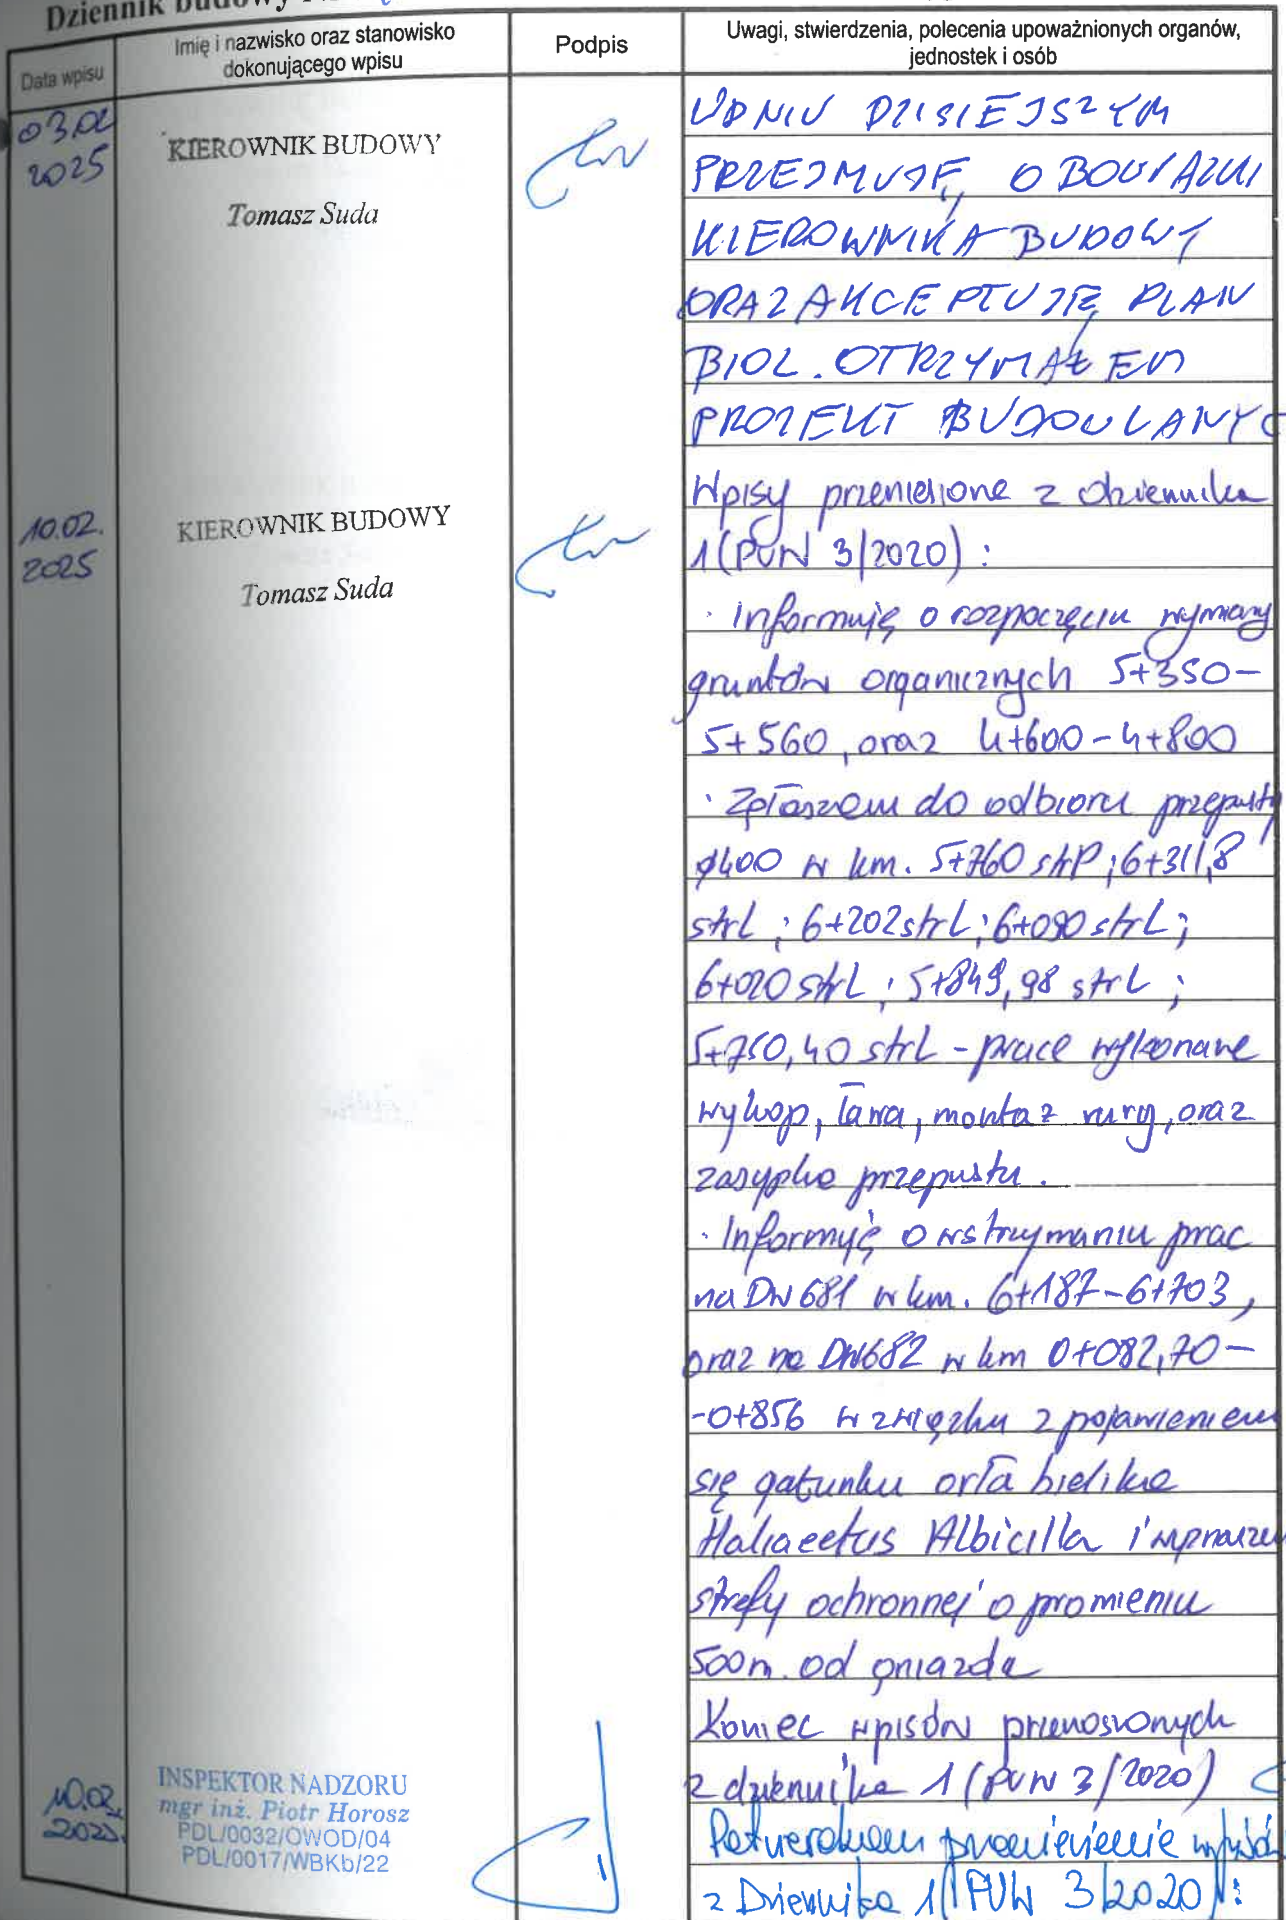 Dziennik budowy
Data wpisu
Imię i nazwisko oraz stanowisko
dokonującego wpisu
Podpis
Uwagi, stwierdzenia, polecenia upoważnionych organów,
jednostek i osób
03.02
2025
KIEROWNIK BUDOWY
Tomasz Suda
W DNIU DZISIEJSZYM
PRZEJMUJĘ OBOWIĄZKI
KIEROWNIKA BUDOWY
ORAZ AKCEPTUJĘ PLAN
BIOZ. OTRZYMAŁEM
PROJEKT BUDOWLANY
10.02.
2025
KIEROWNIK BUDOWY
Tomasz Suda
Wpisy przeniesione z dziennika
1 (PUW 3/2020) :
· Informuję o rozpoczęciu wymiany
gruntów organicznych 5+350-
5+560, oraz 4+600-4+800
· Zgłaszam do odbioru przepusty
ø400 w km. 5+760 strP ; 6+311,8
strL ; 6+202 strL ; 6+090 strL ;
6+020 strL ; 5+849,98 strL ;
5+750,40 strL - prace wykonane
wykop, ława, montaż rury, oraz
zasypka przepustu.
· Informuję o wstrzymaniu prac
na DW 681 w km. 6+187-6+703,
oraz na DW682 w km 0+082,70-
-0+856 w związku z pojawieniem
się gatunku orła bielika
Haliaeetus Albicilla i
strefy ochronnej o promieniu
500m. od gniazda
Koniec wpisów przenoszonych
z dziennika 1 (PUW 3/2020)
10.02.
2025.
INSPEKTOR NADZORU
mgr inż. Piotr Horosz
PDL/0032/OWOD/04
PDL/0017/WBKb/22
Potwierdzam przeniesienie wpisów
z Dziennika 1 (PUW 3/2020) :